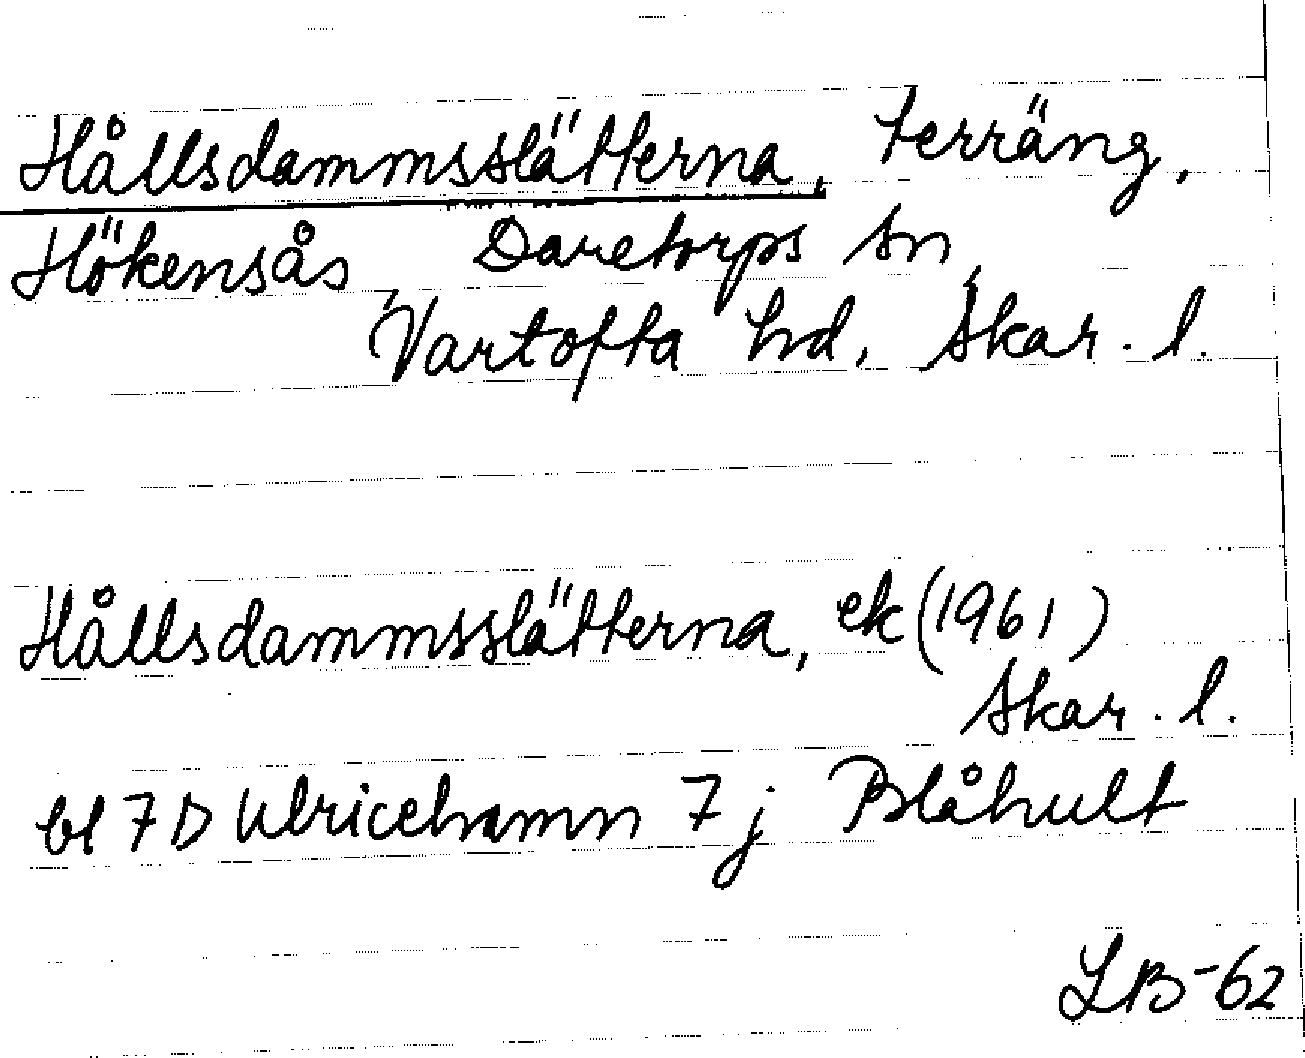 Hållsdammsslätterna, terräng,
Hökensås, Daretorps sn,
Vartofta hd, Skar. l.
Hållsdammsslätterna, ek (1961)
Skar. l.
bl 7D Ulricehamn 7 j Blåhult
LB-62